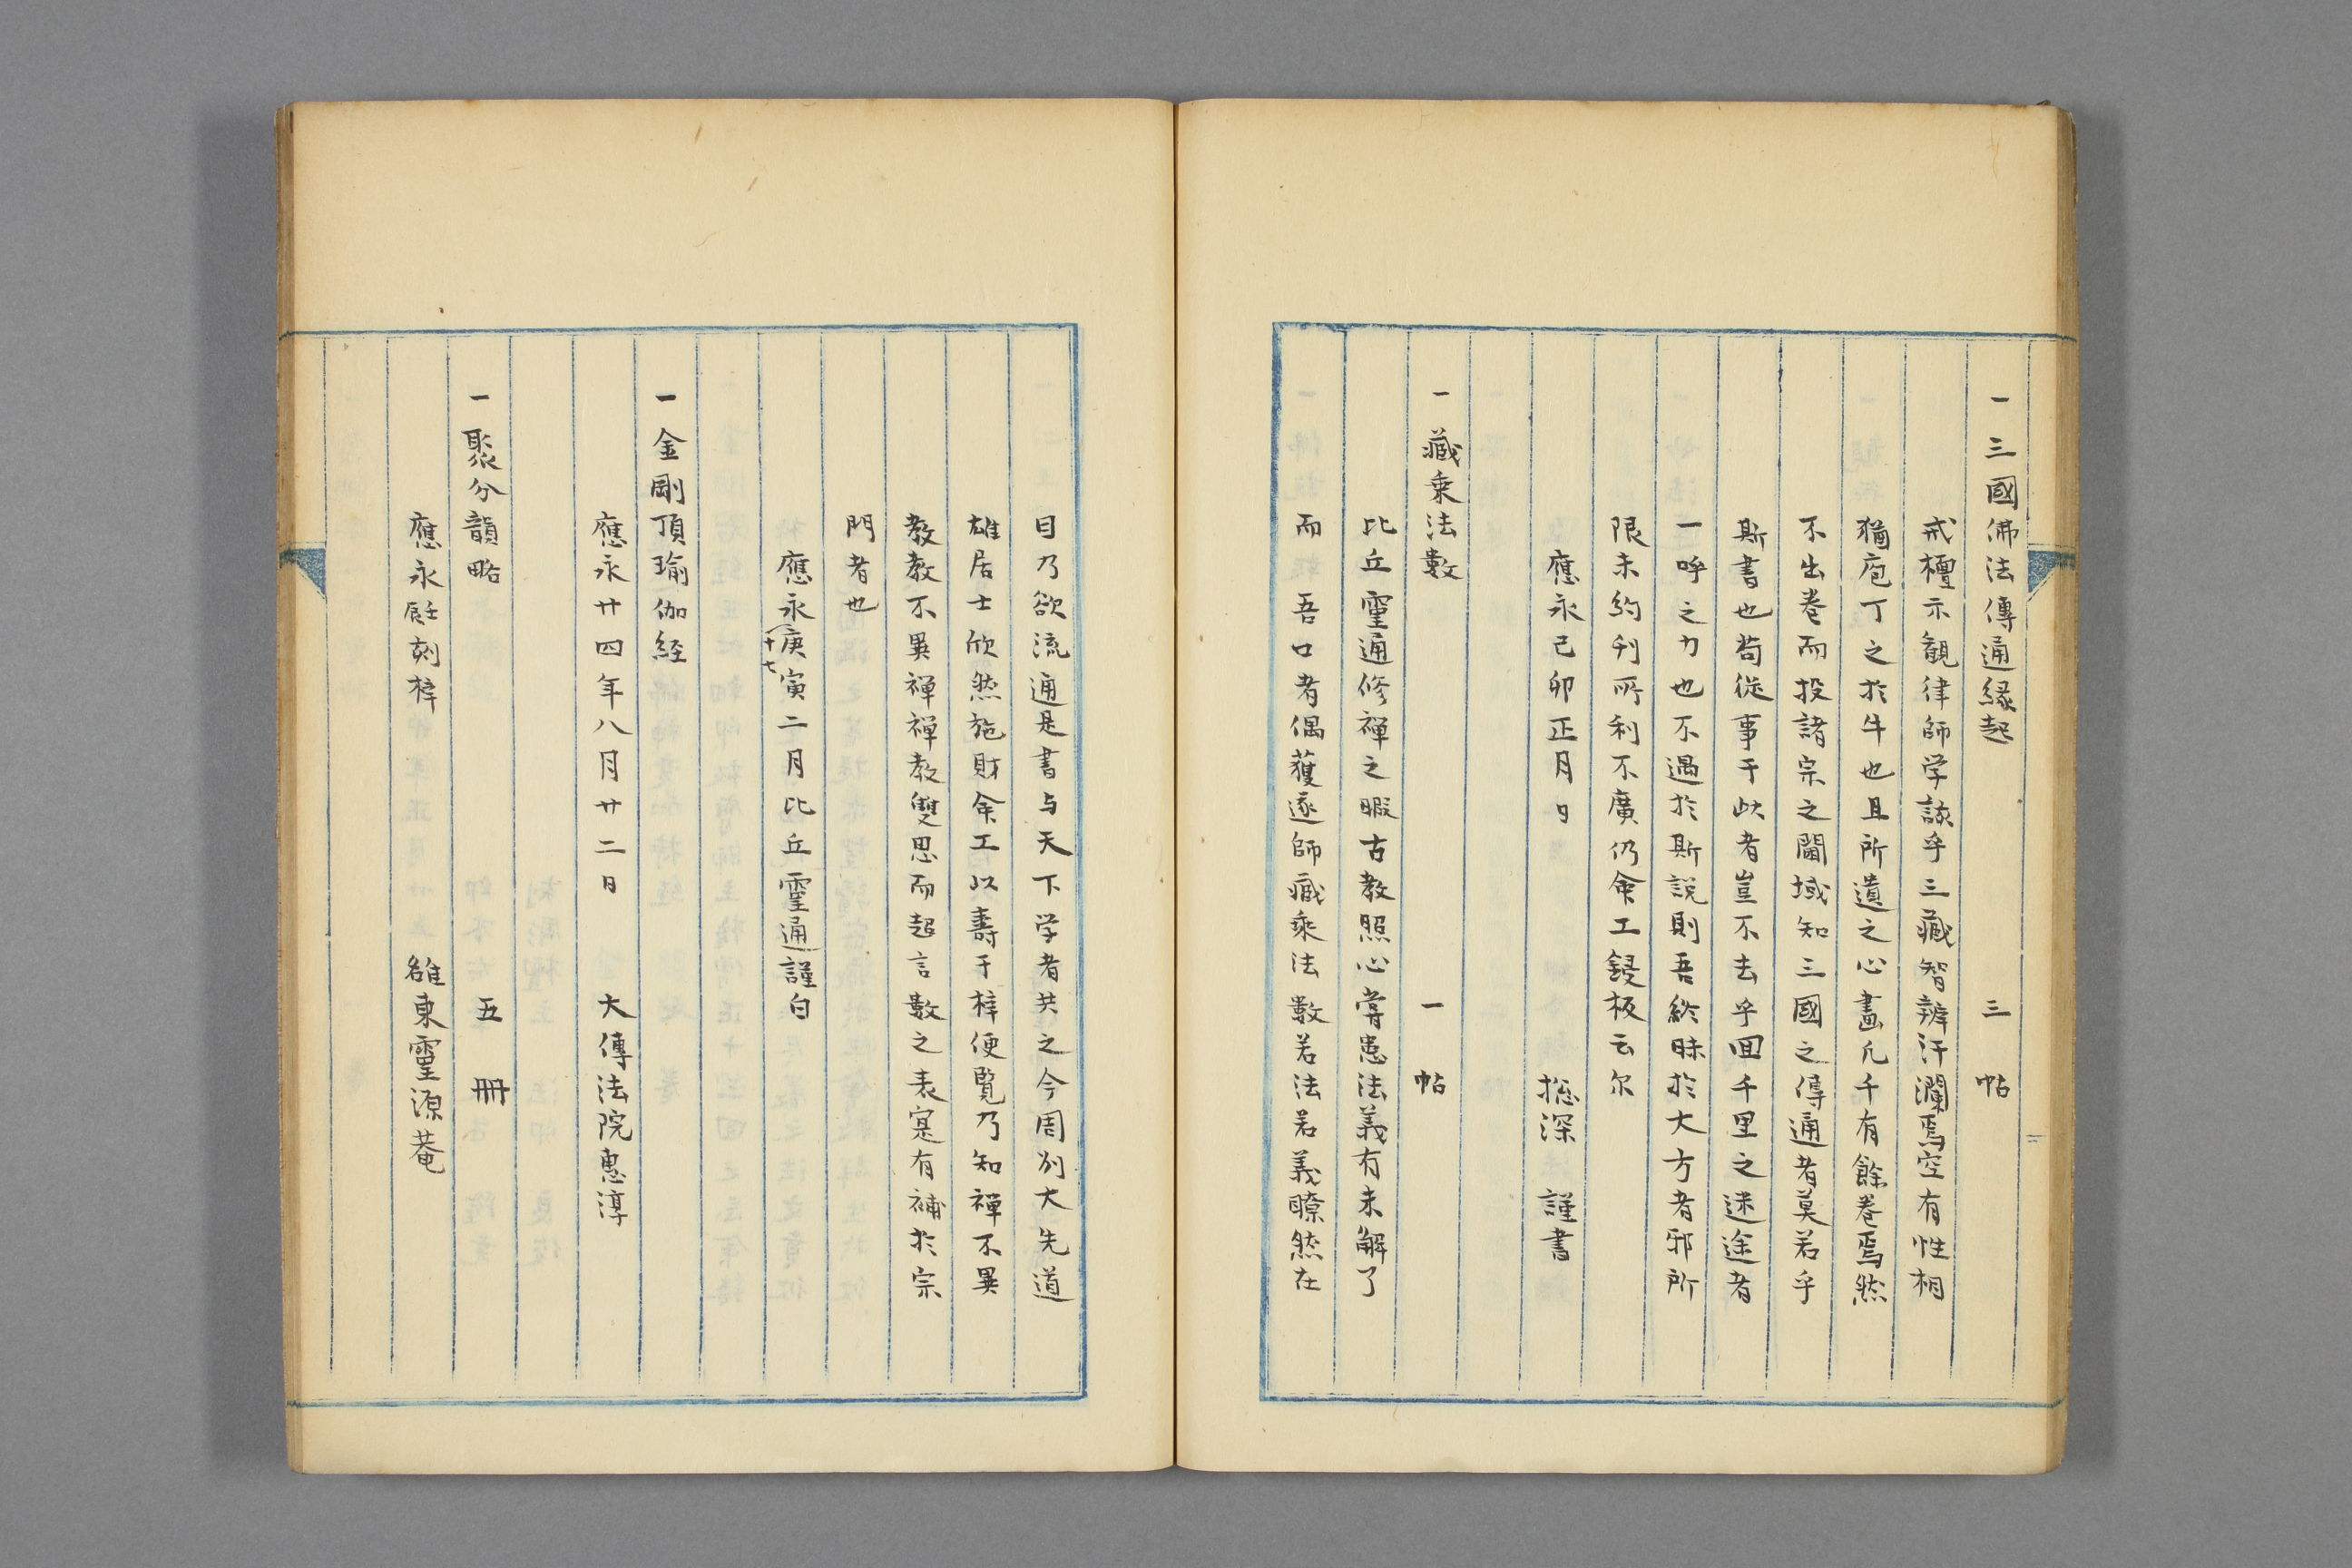 一三國佛法傳通縁起　三帖
戒檀示観律師学該乎三藏智辨汗瀾焉空有性相
猶庖丁之於牛也且所遺之心畫凢千有餘巻焉然
不出巻而投諸宗之閫域知三國之傳通者莫若乎
斯書也苟従事于此者豈不去乎囬千里之迷途者
一呼之力也不遇於斯説則吾終昧於大方者邪所
限未約刋所利不廣仍命工鋟板云尔
應永己卯正月日　捴深　謹書
一藏乗法數　一帖
比丘霊通修禅之暇古教照心嘗患法義有未解了
而吾口者偶獲遂師藏乘法數若法若義瞭然在
目乃欲流通是書与天下学者共之今周別大先道
雄居士欣然施財命工以壽于梓便覧乃知禅不異
教教不異禅禅教雙思而超言數之表寔有補於宗
門者也
應永庚寅二月比丘霊通謹白
十七
一金剛頂瑜伽経
應永廿四年八月廿二日　大傳法院惠淳
一聚分韻略　五冊
應永壬辰刻梓　雒東霊源菴